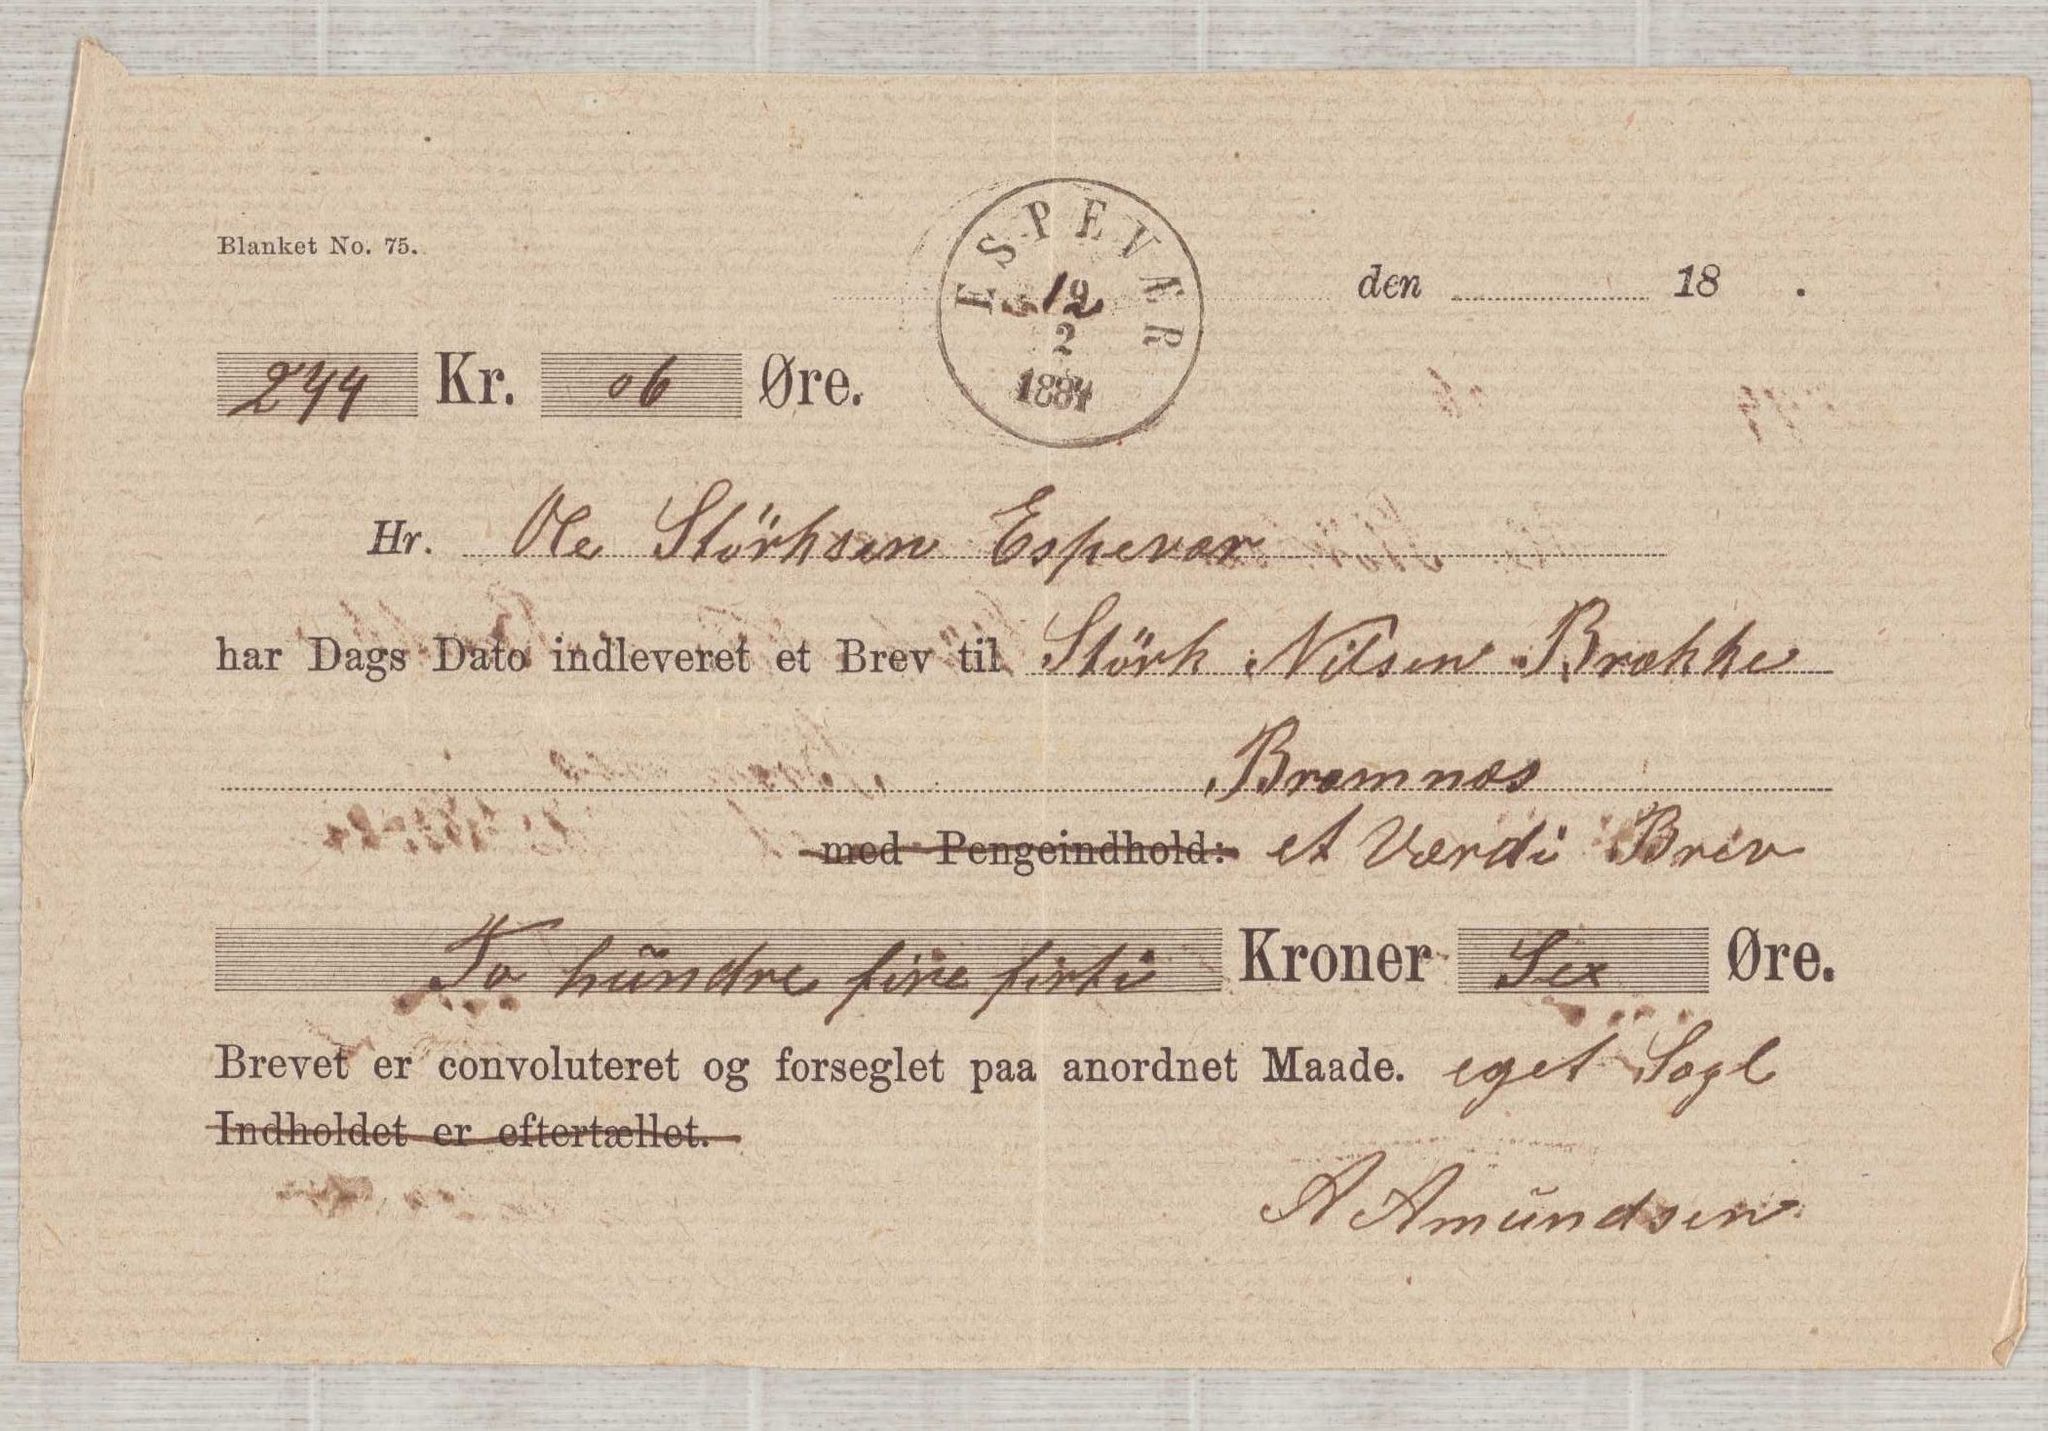 Blanket No. 75.
ESPEVÆR
12
2
1884
den 18 .
244 Kr. 06 Øre.
Hr. Ole Störksen Espevær
har Dags Dato indleveret et Brev til Störk Nilsen Brække
Bremnæs
med Pengeindhold: et Værdi Brev
To hundre fire firti Kroner Sex Øre.
Brevet er convoluteret og forseglet paa anordnet Maade. eget Segl
Indholdet er eftertællet.
A Amundsen